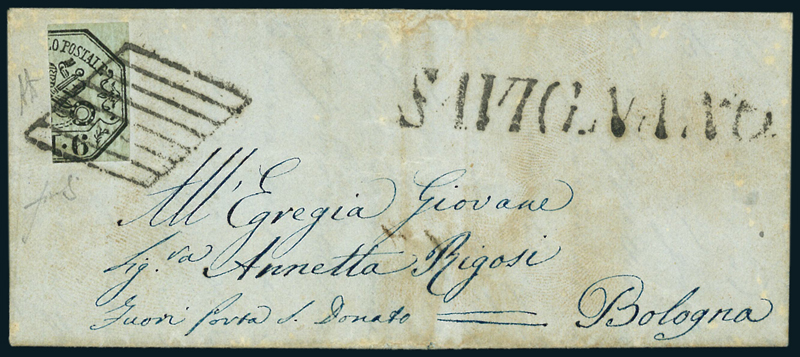 LO POSTALE
J. 6
SAVIGNANO
All' Egregia Giovane
Sig.ra Annetta Rigosi
Fuori Porta S. Donato Bologna